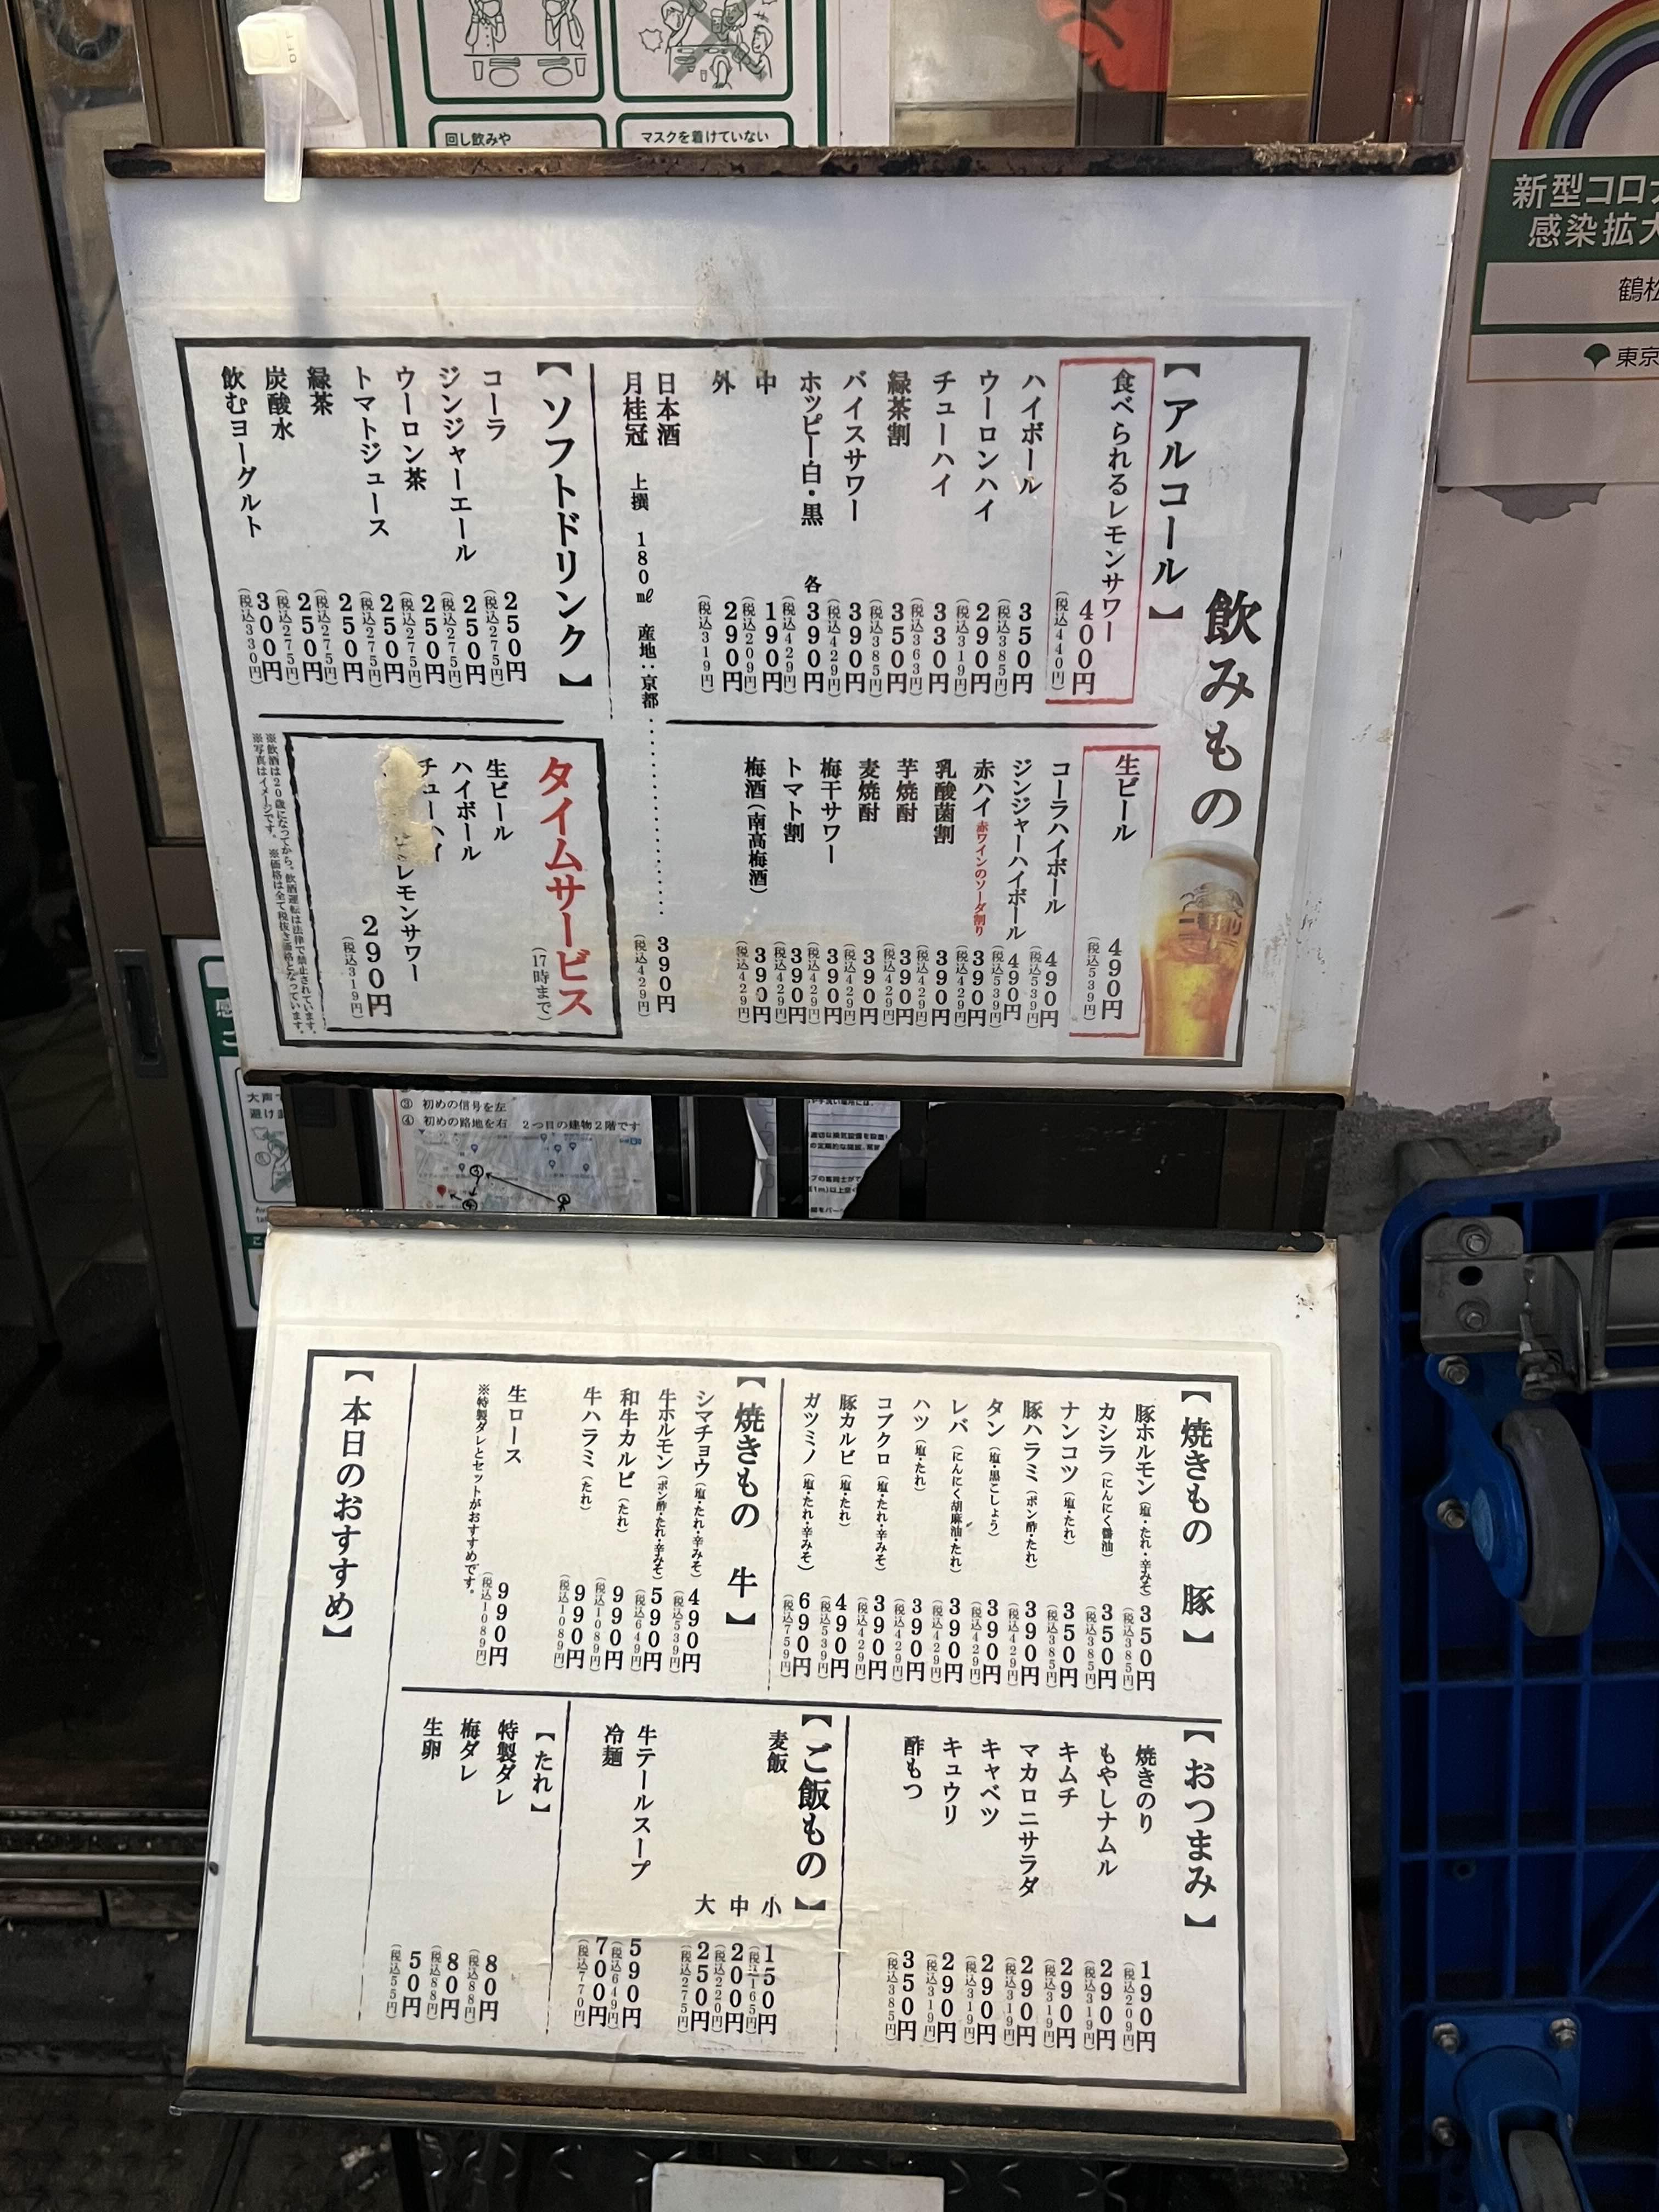 回し飲みや
マスクを着けていない
新型コロナ
感染拡大
東京
飲みもの
【アルコール】
食べられるレモンサワー 400円
(税込440円)
ハイボール 350円
(税込385円)
ウーロンハイ 290円
(税込319円)
チューハイ 330円
(税込363円)
緑茶割 350円
(税込385円)
バイスサワー 390円
(税込429円)
ホッピー白・黒 各390円
(税込429円)
中 190円
(税込209円)
外 290円
(税込319円)
生ビール 490円
(税込539円)
コーラハイボール 490円
(税込539円)
ジンジャーハイボール 490円
(税込539円)
赤ハイ 赤ワインのソーダ割り 390円
(税込429円)
乳酸菌割 390円
(税込429円)
芋焼酎 390円
(税込429円)
麦焼酎 390円
(税込429円)
梅干サワー 390円
(税込429円)
トマト割 390円
(税込429円)
梅酒(南高梅酒) 390円
(税込429円)
日本酒
月桂冠 上撰 180㎖ 産地:京都 390円
(税込429円)
【ソフトドリンク】
コーラ 250円
(税込275円)
ジンジャーエール 250円
(税込275円)
ウーロン茶 250円
(税込275円)
トマトジュース 250円
(税込275円)
緑茶 250円
(税込275円)
炭酸水 250円
(税込275円)
飲むヨーグルト 300円
(税込330円)
タイムサービス
(17時まで)
生ビール
ハイボール
チューハイ
レモンサワー
290円
(税込319円)
※飲酒は20歳になってから。飲酒運転は法律で禁止されています。
※写真はイメージです。 ※価格は全て税抜き価格となっています。
一番搾り
大声で
避けま
③ 初めの信号を左
④ 初めの路地を右 2つ目の建物2階です
【焼きもの 豚】
豚ホルモン(塩・たれ・辛みそ) 350円
(税込385円)
カシラ(にんにく醤油) 350円
(税込385円)
ナンコツ(塩・たれ) 350円
(税込385円)
豚ハラミ(ポン酢・たれ) 390円
(税込429円)
タン(塩・黒こしょう) 390円
(税込429円)
レバ(にんにく胡麻油・たれ) 390円
(税込429円)
ハツ(塩・たれ) 390円
(税込429円)
コブクロ(塩・たれ・辛みそ) 390円
(税込429円)
豚カルビ(塩・たれ) 490円
(税込539円)
ガツミノ(塩・たれ・辛みそ) 690円
(税込759円)
【焼きもの 牛】
シマチョウ(塩・たれ・辛みそ) 490円
(税込539円)
牛ホルモン(ポン酢・たれ・辛みそ) 590円
(税込649円)
和牛カルビ(たれ) 990円
(税込1089円)
牛ハラミ(たれ) 990円
(税込1089円)
生ロース 990円
(税込1089円)
※特製ダレとセットがおすすめです。
【本日のおすすめ】
【おつまみ】
焼きのり 190円
(税込209円)
もやしナムル 290円
(税込319円)
キムチ 290円
(税込319円)
マカロニサラダ 290円
(税込319円)
キャベツ 290円
(税込319円)
キュウリ 290円
(税込319円)
酢もつ 350円
(税込385円)
【ご飯もの】
麦飯 小 150円
(税込165円)
中 200円
(税込220円)
大 250円
(税込275円)
牛テールスープ 590円
(税込649円)
冷麺 700円
(税込770円)
【たれ】
特製ダレ 80円
(税込88円)
梅ダレ 80円
(税込88円)
生卵 50円
(税込55円)